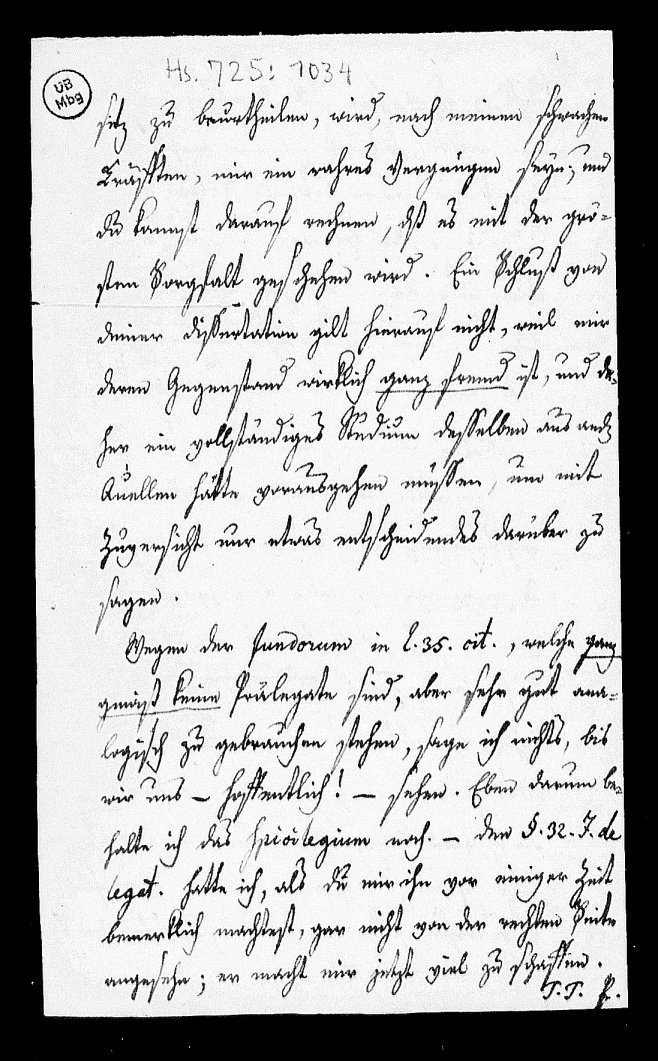 Hs. 725: 1034
UB
Mbg
sitz zu beurtheilen, wird, nach meinen schwachen
Kräfften, mir ein wahres Vergnügen seyn; und
du kannst darauf rechnen, dß es mit der grö-
sten Sorgfalt geschehen wird. Ein Schluß von
deiner dissertation gilt hierauf nicht, weil mir
deren Gegenstand wirklich ganz fremd ist, und da-
her ein vollständiges Studium desselben aus and.
Quellen hätte vorausgehen müssen, um mit
Zuversicht nur etwas entscheidendes darüber zu
sagen.
Wegen der fundorum in l. 35. cit., welche ganz
gewiß keine Prälegate sind, aber sehr gut ana-
logisch zu gebrauchen stehen, sage ich nichts, bis
wir uns – hoffentlich! – sehen. Eben darum be-
halte ich das spicilegium noch. – Den §. 32. J. de
legat. hatte ich, als du mir ihn vor einiger Zeit
bemerklich machtest, gar nicht von der rechten Seite
angesehn; er macht mir jetzt viel zu schaffen.
T. T. R.